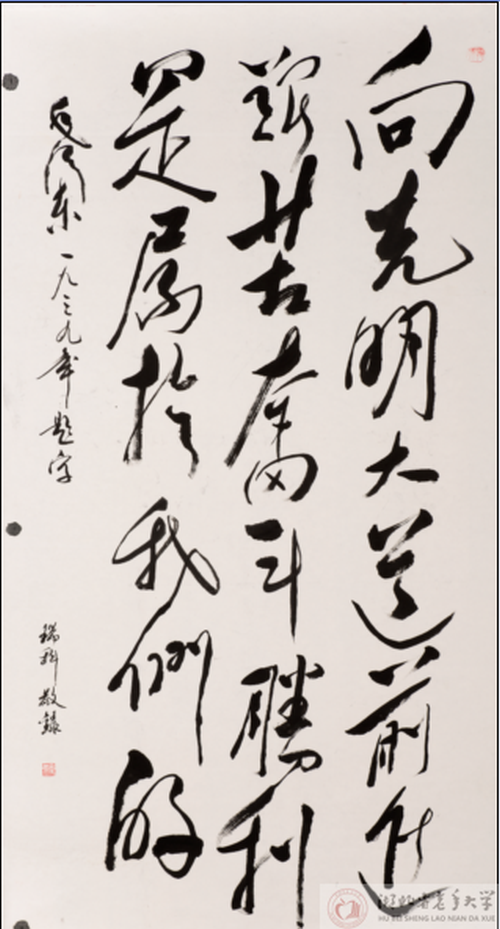 向光明大道前进
艰苦奋斗胜利
是属於我們的
毛泽东一九三九年题字
瑞科敬錄
湖北省老年大学
HU BEI SHENG LAO NIAN DA XUE